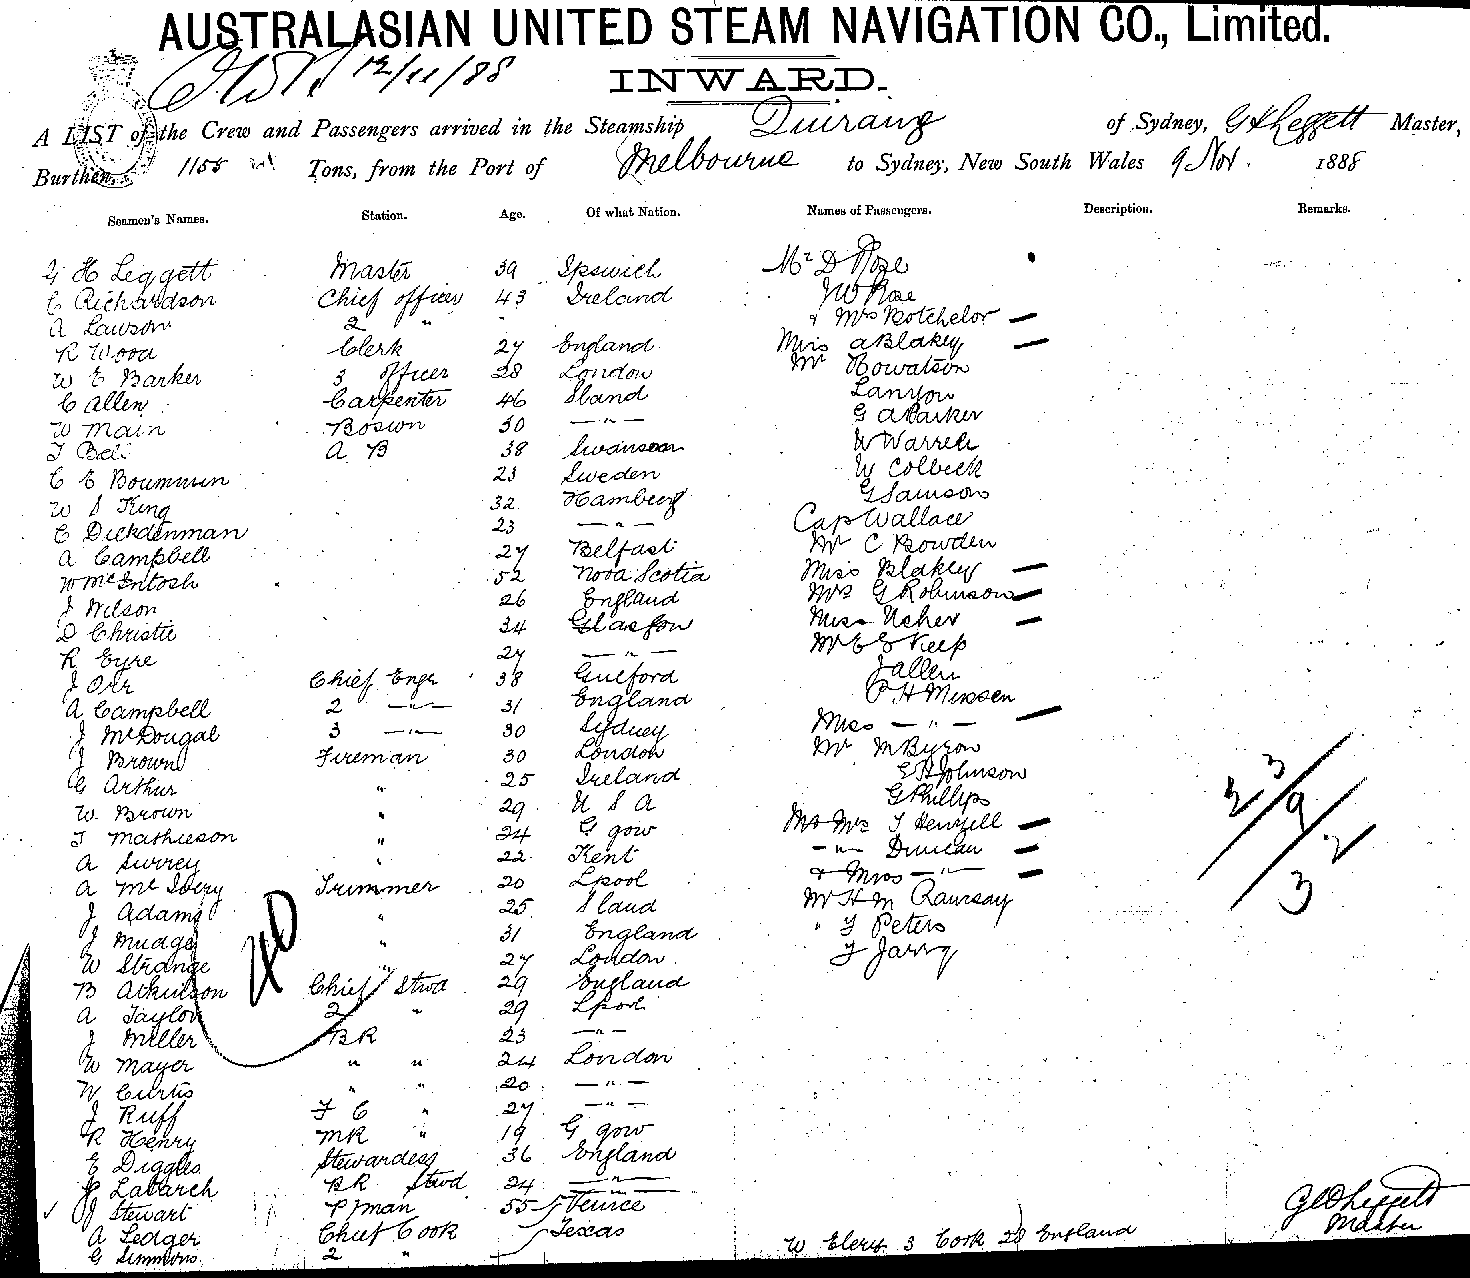 AUSTRALASIAN UNITED STEAM NAVIGATION CO., Limited.
12/11/88
INWARD.
A LIST of the Crew and Passengers arrived in the Steamship Quiraing of Sydney, G H Leggett Master,
Burthen, 1155 Tons, from the Port of Melbourne to Sydney, New South Wales 9 Nov. 1888
Seamen's Names. Station. Age. Of what Nation. Names of Passengers. Description. Remarks.
G H Leggett Master 39 Ipswich Mr D Rose
C Richardson Chief officer 43 Ireland J W Rose
A Lawson 2 " & Mrs Botchelor
R Wood Clerk 27 England Miss A Blakey
W E Barker 3 officer 28 London Mr Howatson
C Allen Carpenter 46 Sland Lanyon
W Main Bosun 30 — " — G A Parker
T Bell A B 38 Swansea W Warren
C E Boummun 23 Sweden W Colbeck
W S King 32 Hamberg G Samson
C Dickdenman 23 — " — Cap Wallace
A Campbell 27 Belfast Mr C Bowden
W McIntosh 52 Nova Scotia Miss Blakey
J Wilson 26 England Mrs G Robinson
D Christie 34 Glasgow Miss Usher
R Eyre 27 — " — Mr E E Keep
J Orr Chief Engr 38 Guilford J Allen
A Campbell 2 — " — 31 England H Missen
J McDougal 3 — " — 30 Sydney Miss — " —
J Brown Fireman 30 London Mr M Byron
G Arthur " 25 Ireland E H Johnson
W. Brown " 29 U S A G Phillips
T Mathieson " 24 G gow Mr Mrs T Henzell
A Surrey " 22 Kent — " — Duncan
A McIvery Trimmer 20 Lpool & Miss — " —
J Adams " 25 Sland Mr H M Ramsay
J Mudge " 31 England " F Peters
W Strange " 27 London F Jarry
B Atkinson Chief Stwd 29 England
A Taylor 2 " 29 Lpool
J Miller BR 23 — " —
W Mayer " " 24 London
W Curtis " " 20 — " —
J Ruff F C " 27 — " —
R Henry MR " 19 G gow
E Diggles Stewardess 36 England
Labarch BR Stwd 24 — " —
J Stewart P man 55 Venice
A Ledger Chief Cook Texas
G Simmons 2 "
W Elery 3 Cook 28 England
40
2 3/9/2
3
G H Leggett
Master